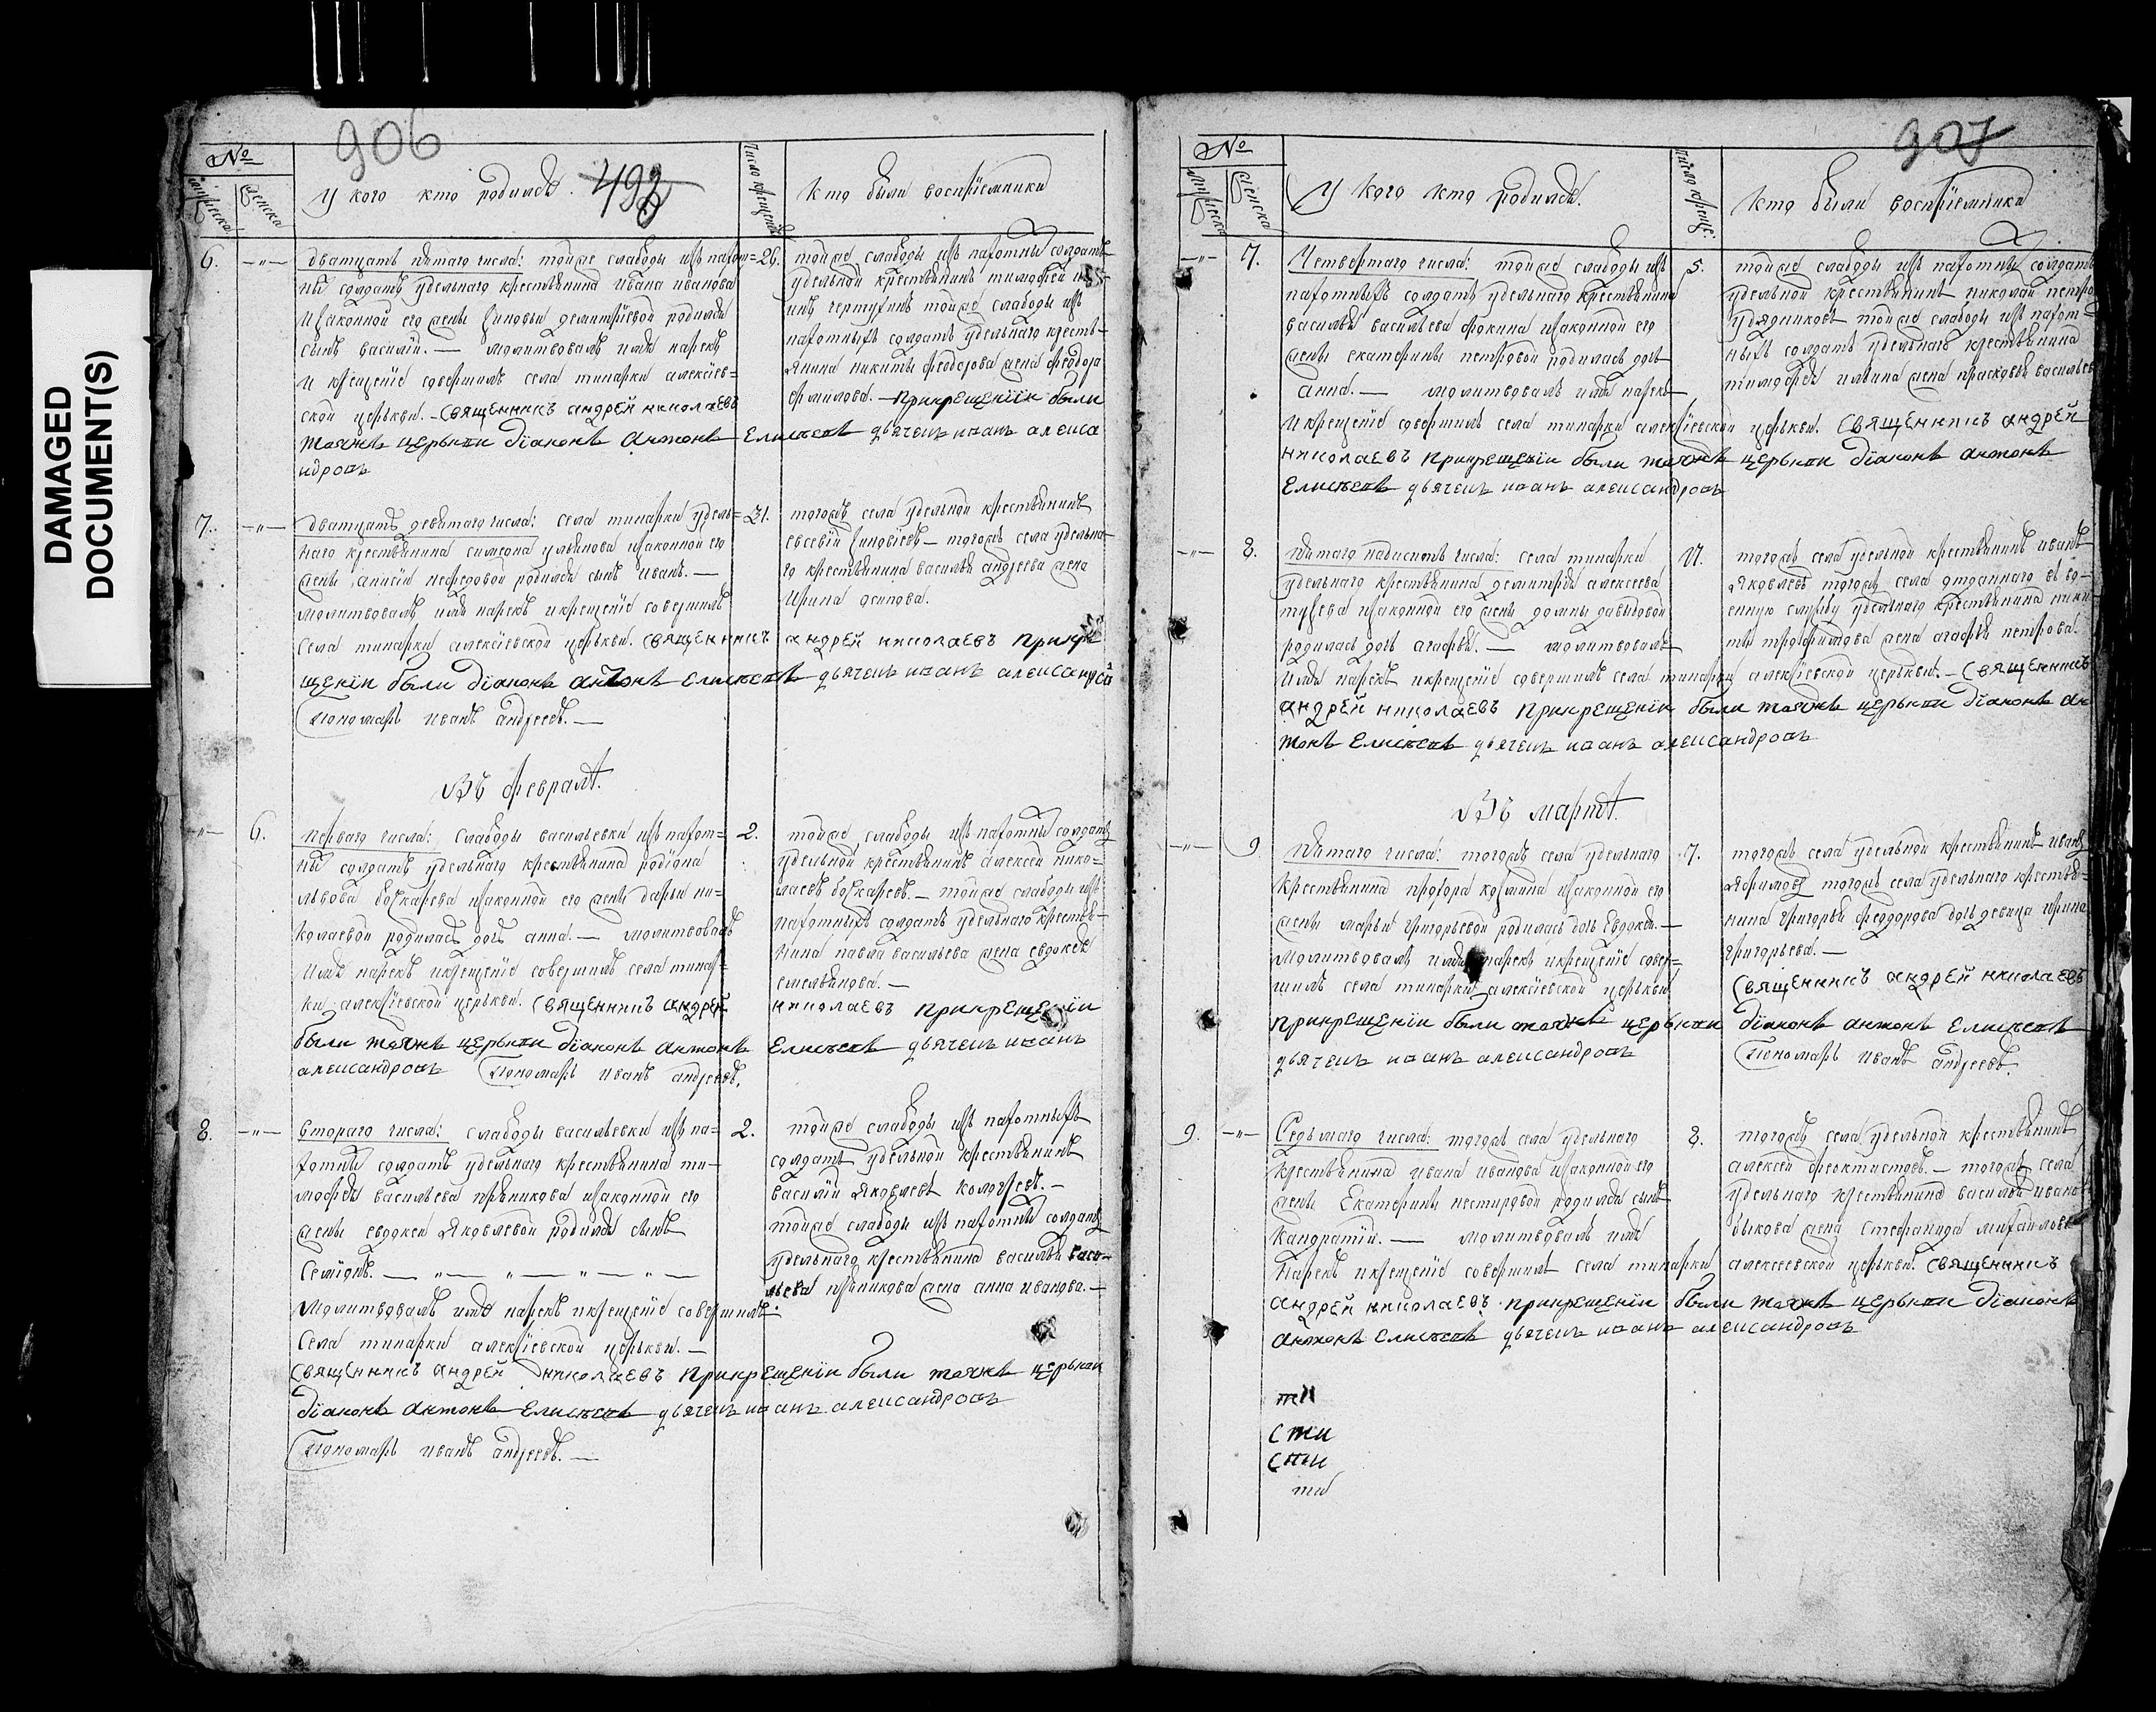 DAMAGED
DOCUMENT(S)
906
№
мужеска
женска
У кого кто родился.
число крещенія
Кто были воспріемники
6. —"— дватцать пятаго числа: тойже слабоды изъ пахот= 26.
ныхъ солдатъ удельнаго крестьянина ивана иванова
и законной его жены зиновьи демитріевой родился
сынъ василій. — молитвовалъ имя нарекъ
и крещеніе совершилъ села тинарки алексіев=
ской церькви. – священникъ андрей николаевъ
тояже церькви діаконъ антонъ Елисеевъ дьячекъ иванъ алекса
ндровъ
тойже слабоды изъ пахотныхъ солдатъ
удельной крестьянинъ тимофей
тойже слабоды изъ
пахотныхъ солдатъ удельнаго кресть=
янина никиты феодорова жена феодора
– прикрещеніи были
7. —"— дватцать девятаго числа: села тинарки удель= 31.
наго крестьянина симеона ульянова и законной его
жены анисіи нефедовой родился сынъ иванъ. —
молитвовалъ имя нарекъ и крещеніе совершилъ
села тинарки алексіевской церькви. священникъ андрей николаевъ прикре
щеніи были діаконъ антонъ елисеевъ дьячекъ иванъ александров
Пономарь иванъ андреевъ. —
тогожъ села удельной крестьянинъ
евсевій зиновіевъ – тогожъ села удельна=
го крестьянина василья андреева жена
ирина осипова.
Въ февралѣ.
—"— 6. перваго числа: слабоды васильевки изъ пахот= 2.
ныхъ солдатъ удельнаго крестьянина родіона
львова бочкарева и законной его жены дарьи ни=
колаевой родилась дочь анна. — молитвовалъ
имя нарекъ и крещеніе совершилъ села тинар=
ки алексіевской церькви. священникъ андрей
были тояже церькви діаконъ антонъ Елисеевъ дьячекъ иванъ
александровъ Пономарь иванъ андреевъ.
тойже слабоды изъ пахотныхъ солдатъ
удельной крестьянинъ алексей нико=
лаевъ бочкаревъ. – тойже слабоды изъ
пахотныхъ солдатъ удельнаго крестья=
нина павла васильева жена евдокея
емельянова. —
николаевъ прикрещеніи
8. —"— втораго числа: слабоды васильевки изъ па= 2.
хотныхъ солдатъ удельнаго крестьянина ти=
мофея васильева пряникова и законной его
жены евдокеи яковлевой родился сынъ
Семіонъ. — " — " — " — " —
молитвовалъ имя нарекъ и крещеніе совершилъ
села тинарки алексіевской церькви. —
священникъ андрей николаевъ прикрещеніи были тояже церькви
діаконъ антонъ елисеевъ дьячекъ иванъ александровъ
Пономарь иванъ андреевъ. —
тойже слабоды изъ пахотныхъ
солдатъ удельной крестьянинъ
василій яковлевъ –
тойже слабоды изъ пахотныхъ солдатъ
удельнаго крестьянина василья васи=
льева пряникова жена анна иванова. —
907
№
мужеска
женска
У кого кто родился.
число креще:
Кто были воспріемники
—"— 7. Четвертаго числа: тойже слабоды изъ 5.
пахотныхъ солдатъ удельнаго крестьянина
василья васильева фокина и законной его
жены екатерины петровой родилась дочь
анна. — молитвовалъ имя нарекъ
и крещеніе совершилъ села тинарки алексіевской церькви. священникъ андрей
николаевъ прикрещеніи были тояже церькви діаконъ антонъ
Елисеевъ дьячекъ иванъ александровъ
тойже слабоды изъ пахотныхъ солдатъ
удельной крестьянинъ николай петро
тойже слабоды изъ пахот=
ныхъ солдатъ удельнаго крестьянина
тимофея ильина жена прасковья васильев
—"— 8. пятаго надесять числа: села тинарки 17.
удельнаго крестьянина демитрія алексеева
и законной его жены домны давыдовой
родилась дочь агафья. — молитвовалъ
имя нарекъ и крещеніе совершилъ села тинарки алексіевской церькви. – священникъ
андрей николаевъ прикрещеніи были тояже церькви діаконъ ан
тонъ Елисеевъ дьячекъ иванъ александровъ
тогожъ села удельной крестьянинъ иванъ
яковлевъ тогожъ села отданнаго въ во=
енную службу удельнаго крестьянина ники
ты трофимова жена агафья петрова.
Въ мартѣ.
—"— 9 пятаго числа: тогожъ села удельнаго 7.
крестьянина прохора козмина и законной его
жены марьи григорьевой родилась дочь Евдокея. —
молитвовалъ имя нарекъ и крещеніе совер=
шилъ села тинарки алексіевской церькви
прикрещеніи были тояже церькви діаконъ антонъ Елисеевъ
дьячекъ иванъ александровъ Пономарь иванъ андреевъ.
тогожъ села удельной крестьянинъ иванъ
тогожъ села удельнаго крестья=
нина григорья феодорова дочь девица ирина
григорьева. —
священникъ андрей николаевъ
9. —"— Седьмаго числа: тогожъ села удельнаго 8.
крестьянина ивана иванова и законной его
жены Екатерины нестировой родился сынъ
Кандратій. — молитвовалъ имя
нарекъ и крещеніе совершилъ села тинарки алексеевской церькви. священникъ
андрей николаевъ прикрещеніи были тояже церькви діаконъ
антонъ елисеевъ дьячекъ иванъ александровъ
тогожъ села удельной крестьянинъ
алексей феоктистовъ. – тогожъ села
удельнаго крестьянина василья ивано
быкова жена Стефанида михайлова
ти
сти
сти
ти